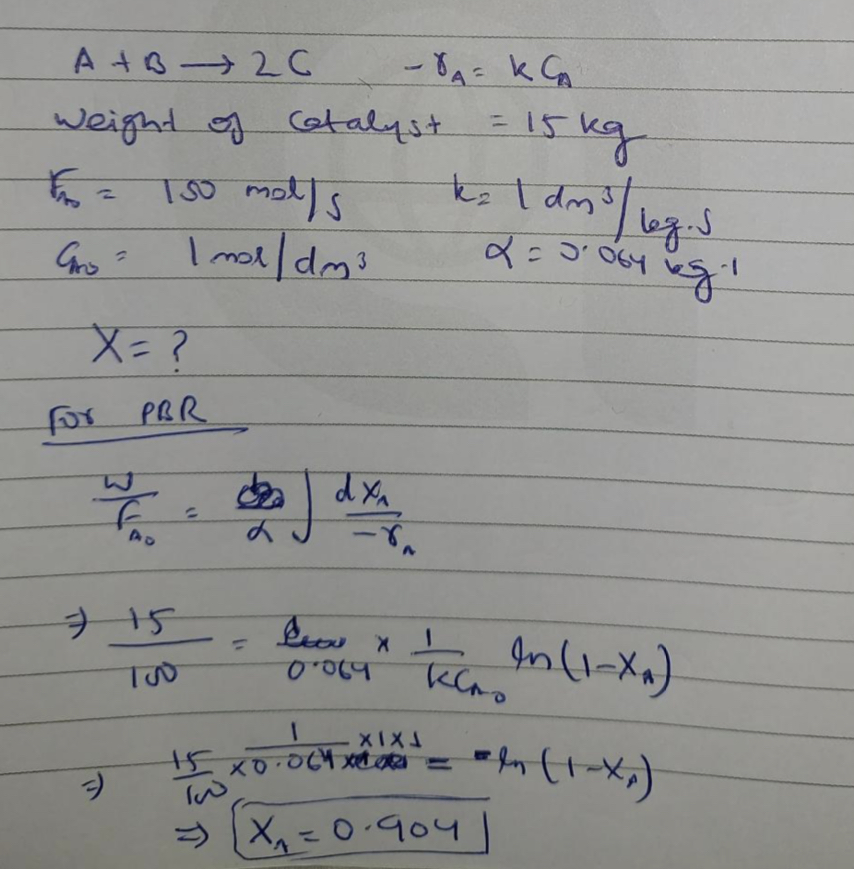 A + B → 2C -rA = kCA
Weight of Catalyst = 15 kg
FA0 = 150 mol/s k = 1 dm³/kg.s
CA0 = 1 mol/dm³ α = 0.064 kg-1
X = ?
For PBR
W/FA0 = α ∫ dXA/-rA
⇒ 15/100 = 0.064 × 1/kCA0 ln(1-XA)
⇒ 15/100 × 1/0.064 ×1×1 = -ln(1-XA)
⇒ XA = 0.904